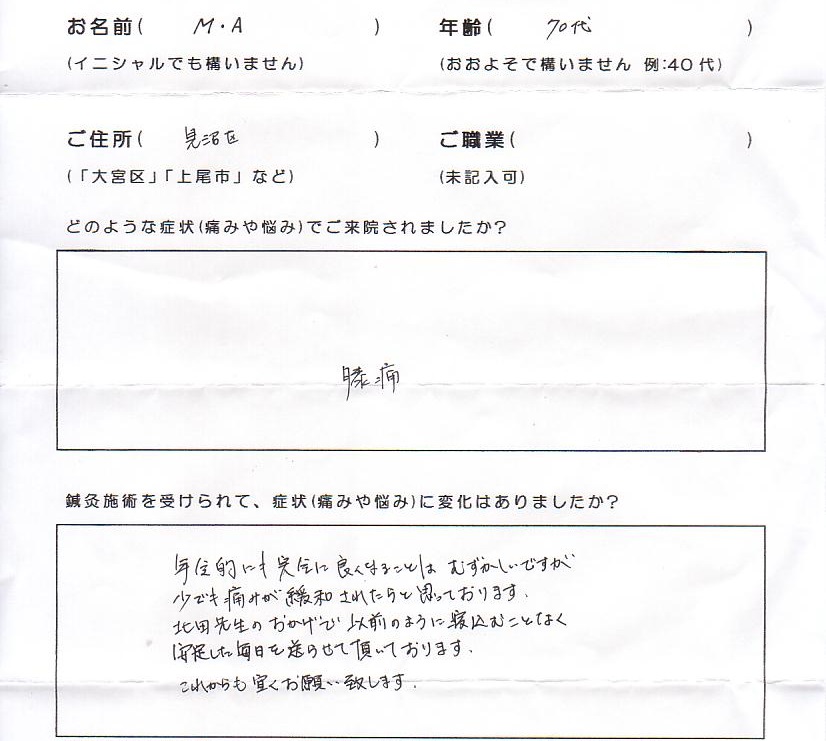 お名前( M・A ) 年齢( 70代 )
(イニシャルでも構いません) (おおよそで構いません 例:40代)
ご住所( 見沼区 ) ご職業( )
(「大宮区」「上尾市」など) (未記入可)
どのような症状(痛みや悩み)でご来院されましたか?
膝痛
鍼灸施術を受けられて、症状(痛みや悩み)に変化はありましたか?
年位的にも完全に良くなることは むずかしいですが
少でも痛みが緩和されたらと思っております.
北田先生のおかげで 以前のように寝込むことなく
安定した毎日を送らせて頂いております.
これからも宜くお願い致します.